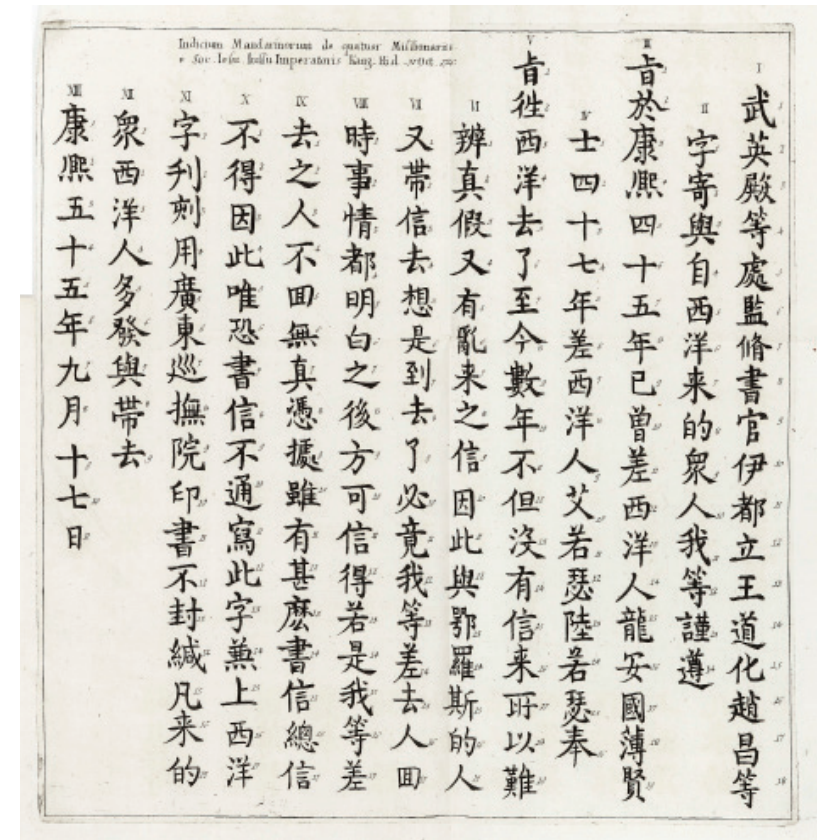 Indicium Mandarinorum de quatuor Missionariis
Soc. Iesu Iussu Imperatoris Kang. Hi d.
I
武英殿等處監脩書官伊都立王道化趙昌等
II
字寄與自西洋来的衆人我等謹遵
III
旨於康熈四十五年已曾差西洋人龍安國薄賢
IV
士四十七年差西洋人艾若瑟陸若瑟奉
V
旨徃西洋去了至今數年不但沒有信来所以難
VI
辨真假又有亂来之信因此與鄂羅斯的人
VII
又帶信去想是到去了必竟我等差去人囬
VIII
時事情都明白之後方可信得若是我等差
IX
去之人不囬無真憑據雖有甚麽書信總信
X
不得因此唯恐書信不通寫此字兼上西洋
XI
字刋刻用廣東巡撫院印書不封緘凡来的
XII
衆西洋人多發與帶去
XIII
康熈五十五年九月十七日